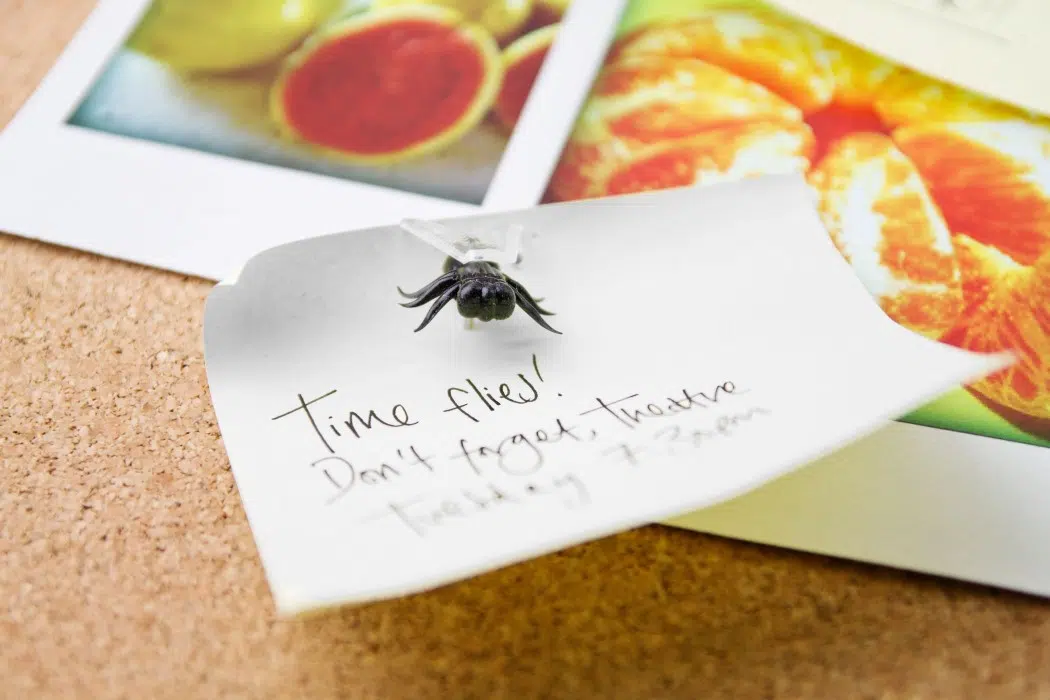 Time flies!
Don't forget, theatre
Tuesday 7.30pm